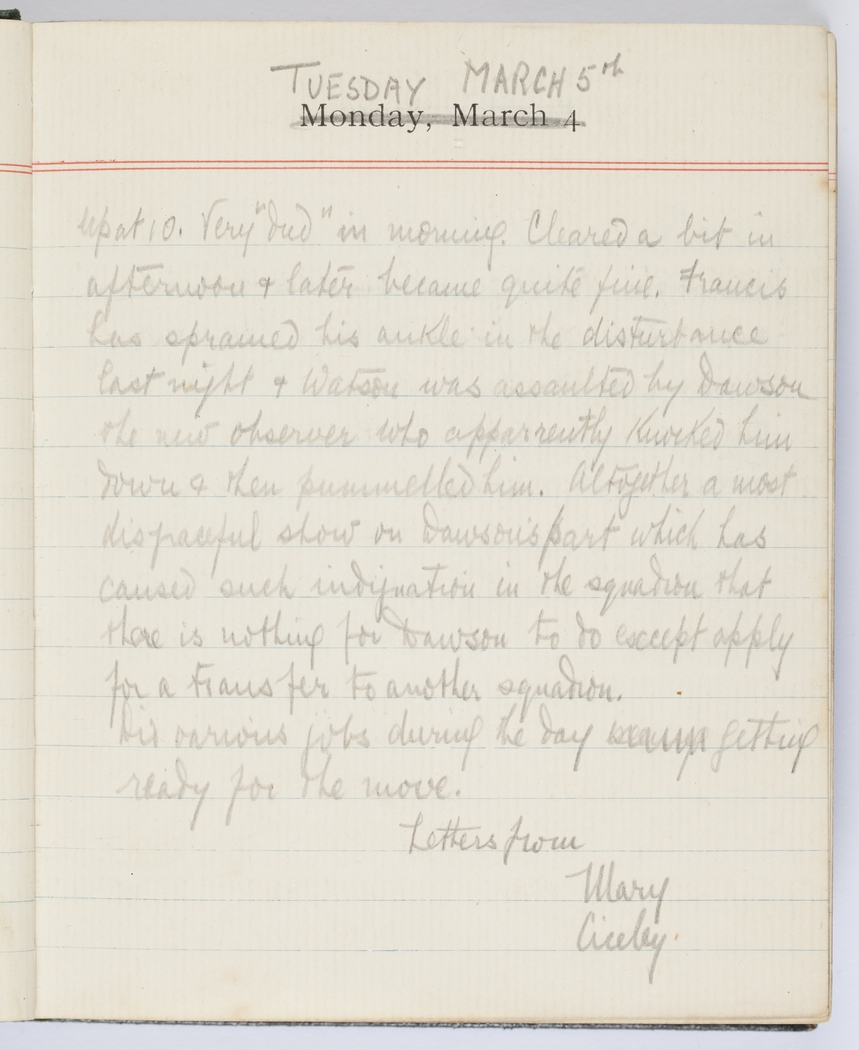 TUESDAY MARCH 5th
Monday, March 4
Up at 10. Very "dud" in morning. Cleared a bit in
afternoon & later became quite fine. Francis
has sprained his ankle in the disturbance
last night & Watson was assaulted by Dawson
the new observer who apparrently knocked him
down & then pummelled him. Altogether a most
disgraceful show on Dawson's part which has
caused such indignation in the squadron that
there is nothing for Dawson to do except apply
for a transfer to another squadron.
Did various jobs during the day getting
ready for the move.
Letters from
Mary
Cicely.